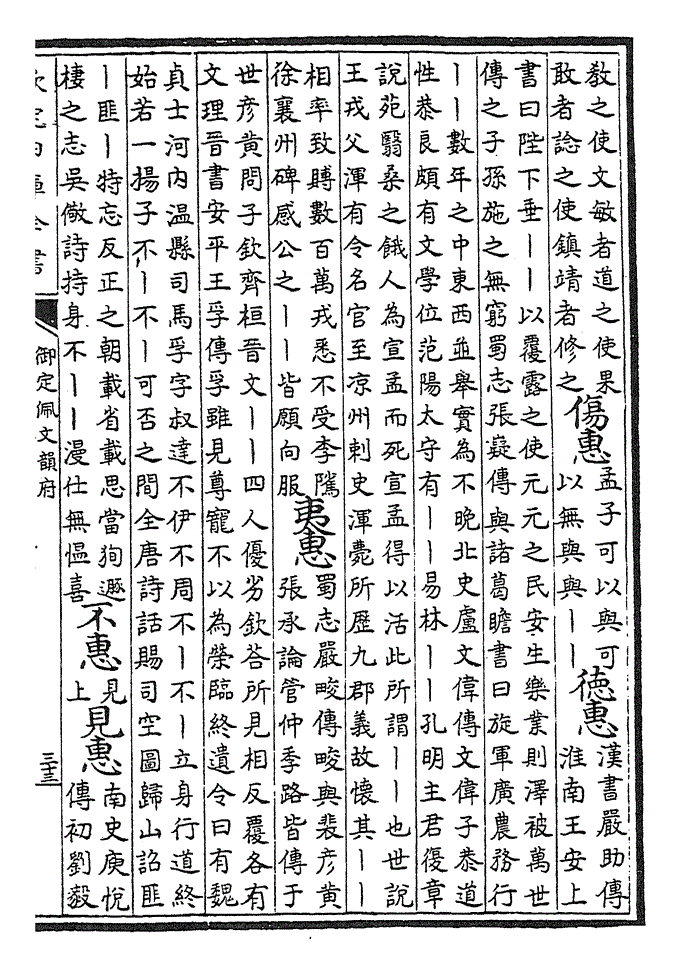 教之使文敏者道之使果
敢者諗之使鎮靖者修之
傷惠
孟子可以與可
以無與與丨丨
德惠
漢書嚴助傳
淮南王安上
書曰陛下垂丨丨以覆露之使元元之民安生樂業則澤被萬世
傳之子孫施之無窮蜀志張嶷傳與諸葛瞻書曰旋軍廣農務行
丨丨數年之中東西並舉實為不晚北史盧文偉傳文偉子恭道
性恭良頗有文學位范陽太守有丨丨易林丨丨孔明主君復章
說苑翳桑之餓人為宣孟而死宣孟得以活此所謂丨丨也世說
王戎父渾有令名官至凉州刺史渾薨所歷九郡義故懷其丨丨
相率致賻數百萬戎悉不受李隲
徐襄州碑感公之丨丨皆願向服
夷惠
蜀志嚴畯傳畯與裴彥黄
張承論管仲季路皆傳于
世彥黄問子欽齊桓晉文丨丨四人優劣欽荅所見相反覆各有
文理晉書安平王孚傳孚雖見尊寵不以為榮臨終遺令曰有魏
貞士河内温縣司馬孚字叔達不伊不周不丨不丨立身行道終
始若一揚子不丨不丨可否之間全唐詩話賜司空圖歸山詔匪
丨匪丨特忘反正之朝載省載思當狥遯
棲之志吳儆詩持身不丨丨漫仕無愠喜
不惠
見
上
見惠
南史庾悦
傳初劉毅
欽定四庫全書
御定佩文韻府
三十三